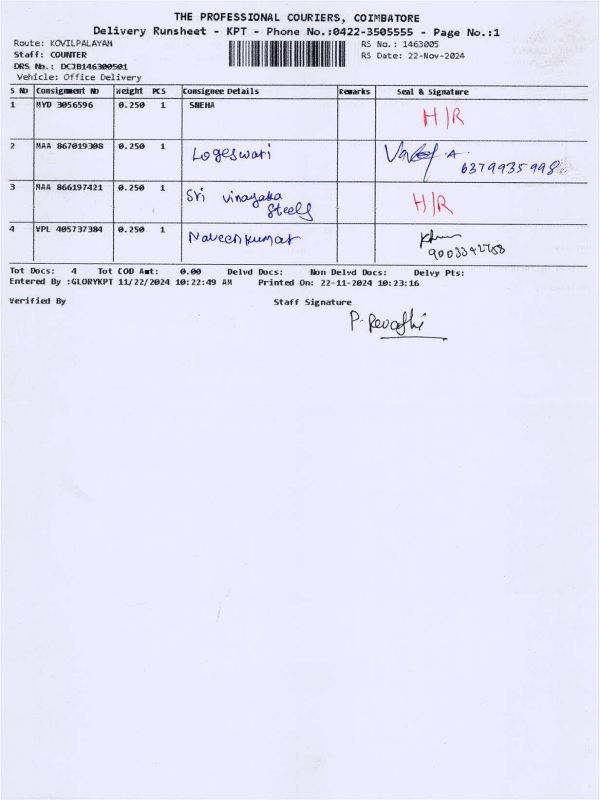 THE PROFESSIONAL COURIERS, COIMBATORE
Delivery Runsheet - KPT - Phone No.:0422-3505555 - Page No.:1
Route: KOVILPALAYAM RS No.: 1463005
Staff: COUNTER RS Date: 22-Nov-2024
DRS No.: DCJB146300501
Vehicle: Office Delivery
S No Consignment No Weight PCS Consignee Details Remarks Seal & Signature
1 MYD 3056596 0.250 1 SNEHA H/R
2 MAA 867019308 0.250 1 Logeswari A. 6379935998
3 MAA 866197421 0.250 1 Sri vinayaka H/R
Steels
4 VPL 405737384 0.250 1 Naveenkumar
Tot Docs: 4 Tot COD Amt: 0.00 Delvd Docs: Non Delvd Docs: Delvy Pts:
Entered By :GLORYKPT 11/22/2024 10:22:49 AM Printed On: 22-11-2024 10:23:16
Verified By Staff Signature
P. Revathi